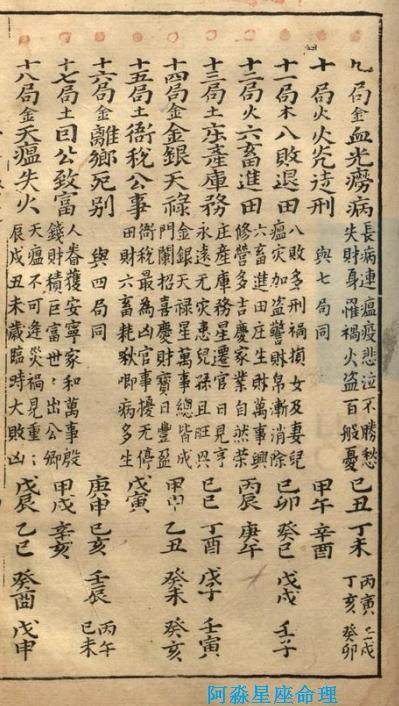 九局金血光癆病
長病連瘟疫悲泣不勝愁
失財身罹禍火盜百般憂
己丑 丁未 丙寅 壬戌
丁亥 癸卯
十局火火光徒刑
與七局同
甲午 辛酉
十一局木八敗退田
八敗多刑禍損女及妻兒
瘟灾加盜財帛漸消除
己卯 癸巳 戊戌 壬子
十二局火六畜進田
六畜進田庄生財萬事興
修營多吉慶家業自然榮
丙辰 庚午
十三局土庄產庫務
庄產庫務星遷官日見亨
永遠无灾患兒孫且旺興
己巳 丁酉 戊子 壬寅
十四局金金銀天祿
金銀天祿星萬事總皆成
門闌招喜慶財寶日豐盈
甲申 乙丑 癸未 癸亥
十五局土衙稅公事
衙稅最為凶官事擾无停
田財六畜耗啾唧病多生
戊寅
十六局金離鄉死别
與四局同
庚申 己亥 壬辰 丙午
己未
十七局土曰公致富
人眷獲安寧家和萬事殷
錢財積巨富世々出公卿
甲戌 辛亥
十八局金天瘟失火
天瘟不可逢災禍見重々
辰戌丑未歲臨時大敗凶
戊辰 乙巳 癸酉 戊申
阿淼星座命理